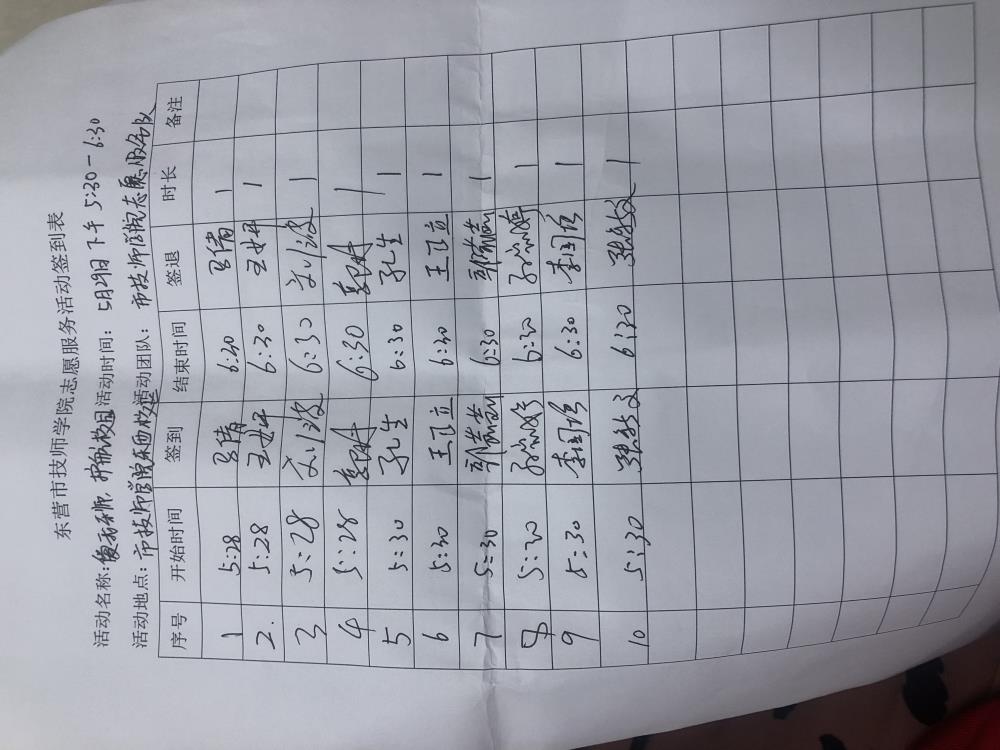 东营市技师学院志愿服务活动签到表
活动名称: 护航校园 活动时间: 5月29日下午 5:30-6:30
活动地点: 市技师学院东西校门 活动团队: 市技师学院志愿服务队
序号 开始时间 签到 结束时间 签退 时长 备注
1 5:28 倩 6:30 倩 1
2. 5:28 王 6:30 王 1
3 5:28 刘波 6:30 刘波 1
4 5:28 6:30 1
5 5:30 孔生 6:30 孔生 1
6 5:30 王 6:30 王 1
7 5:30 郭 6:30 郭 1
8 5:30 孙 6:30 孙 1
9 5:30 李 6:30 李 1
10 5:30 张 6:30 张 1